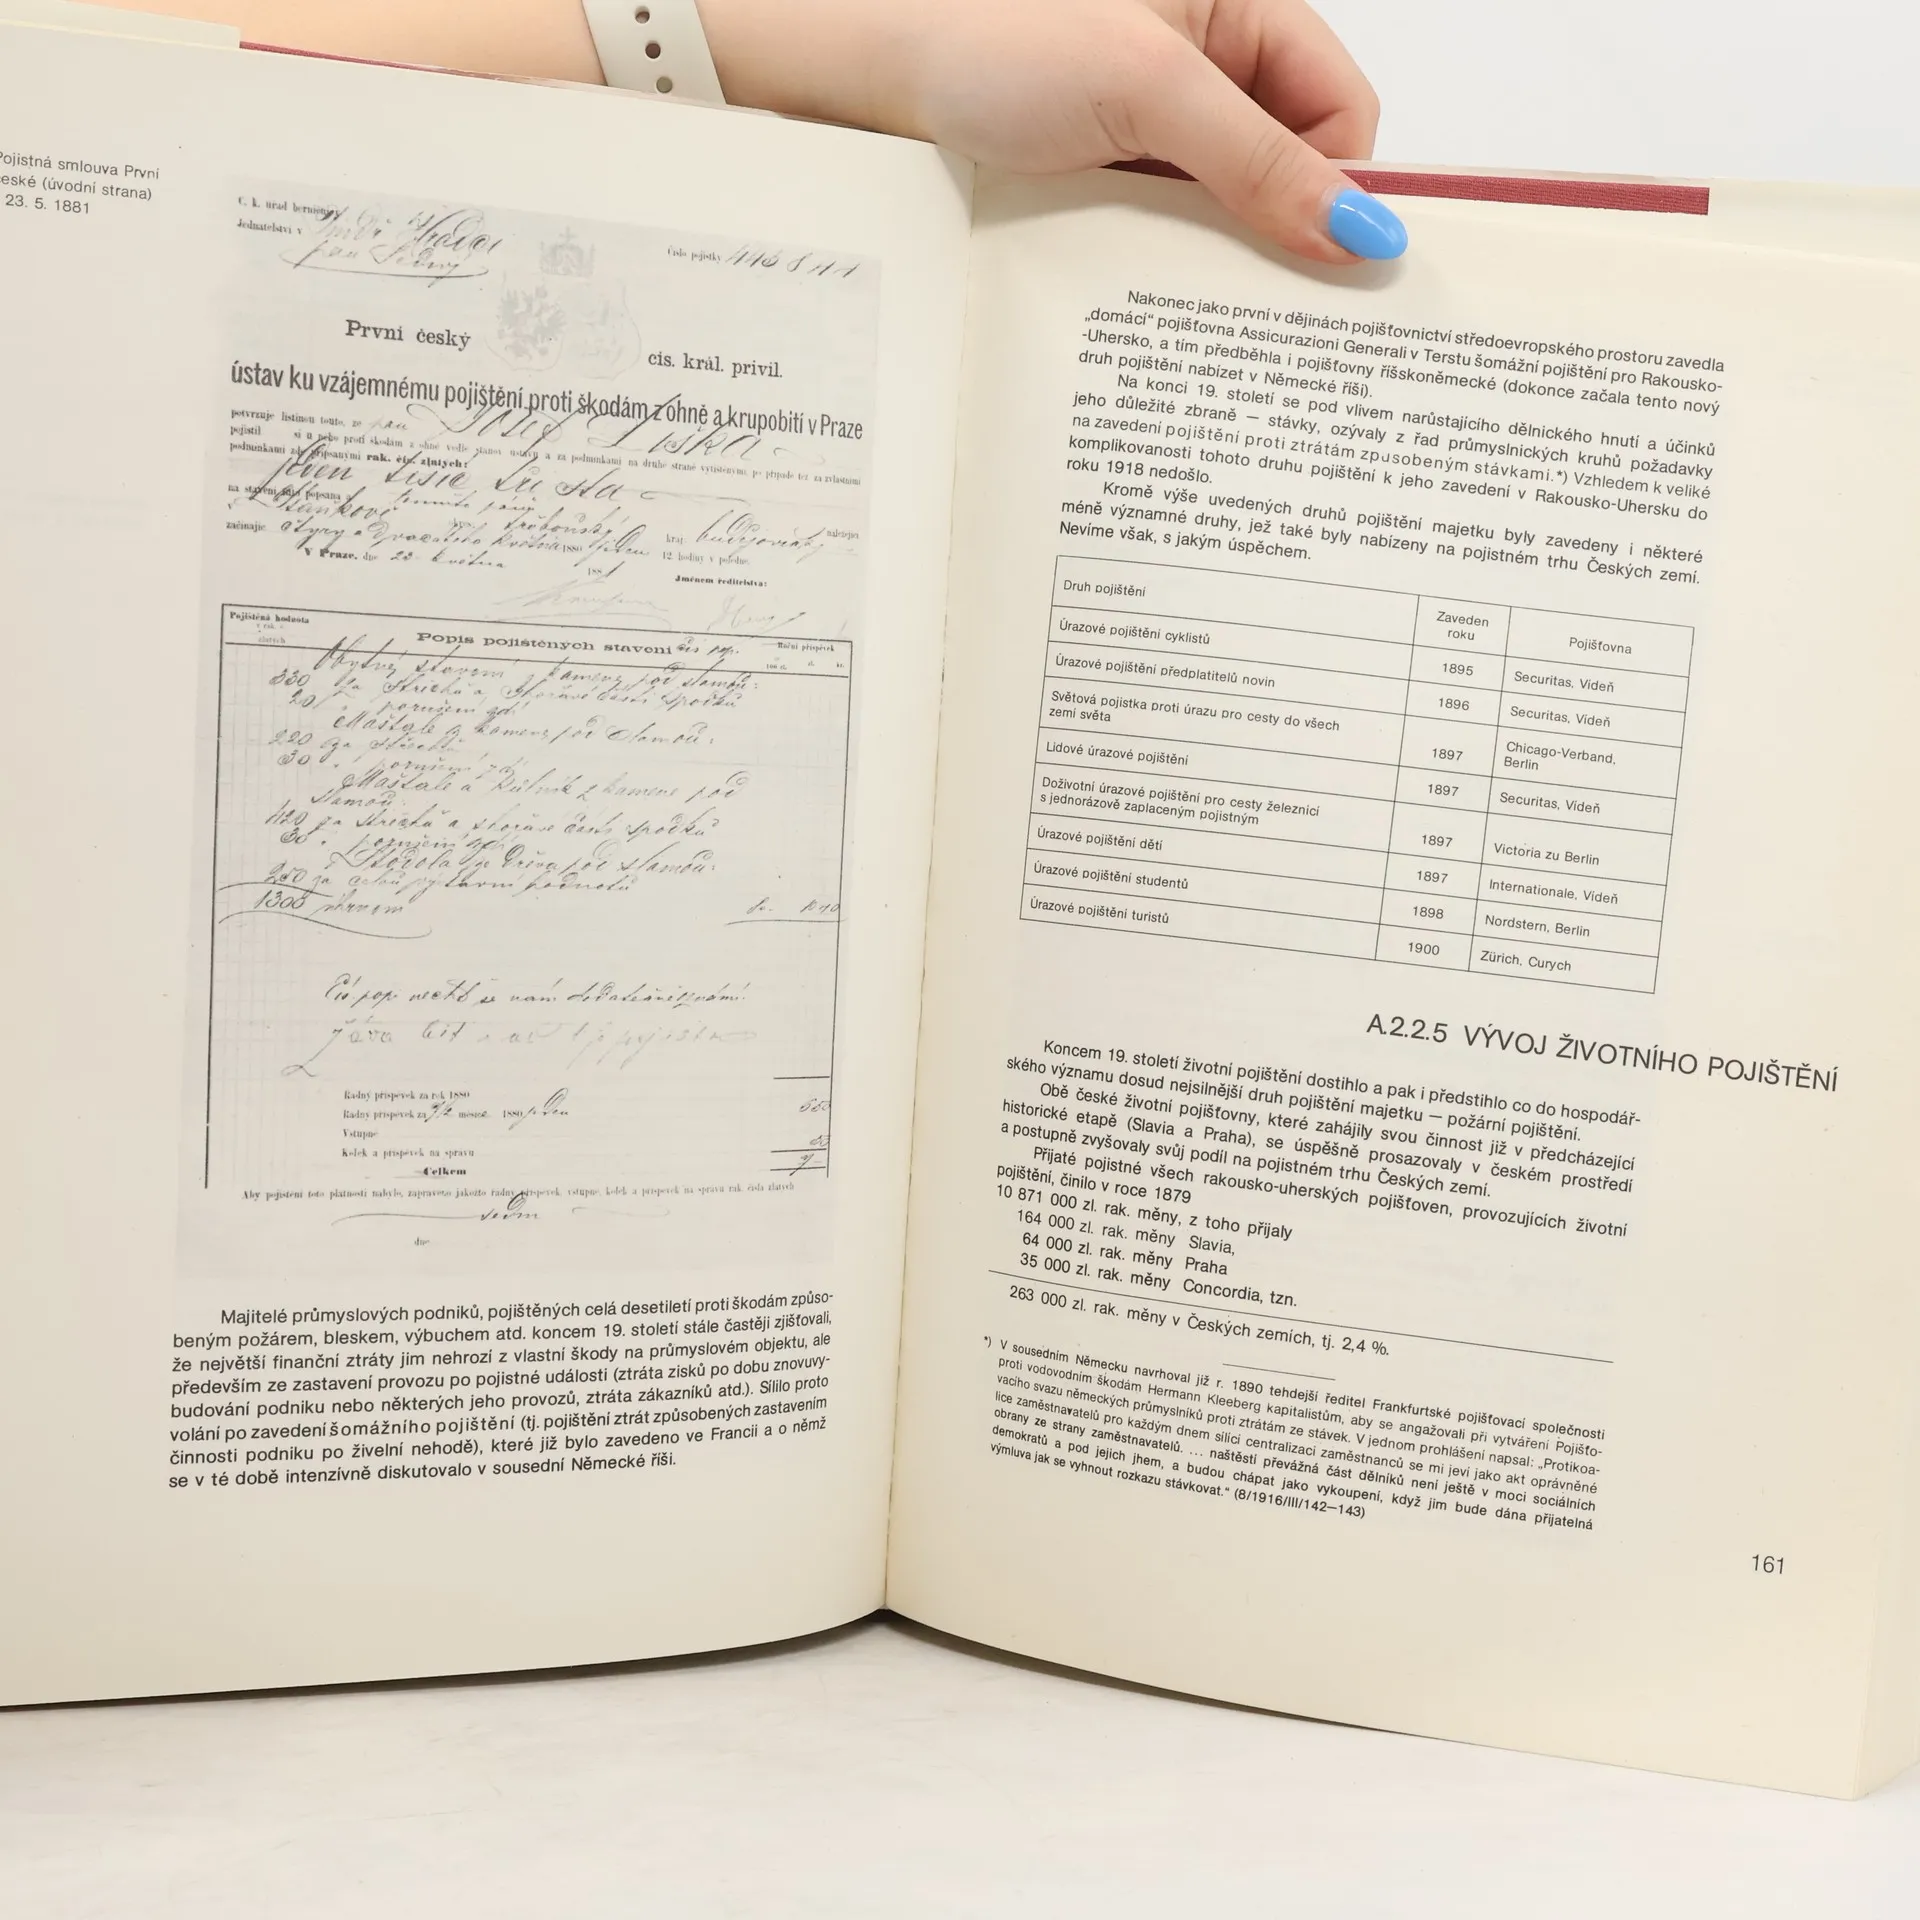 Pojistná smlouva První
české (úvodní strana)
23. 5. 1881
C. k. úřad berniční
Jednatelství v
Číslo pojistky
První český
cis. král. privil.
ústav ku vzájemnému pojištění proti škodám z ohně a krupobití v Praze
potvrzuje listinou touto, že pan Josef
pojistil si u něho proti škodám z ohně vedle stanov ústavu a za podmínkami na druhé straně vytištěnými, po případě též za zvláštními
podmínkami zde připsanými rak. čís. zlatých:
jeden tisíc tři sta
na stavení níže popsaná
kraj budějovický
začínajíc 12 hodiny v poledne.
V Praze, dne 23 května 1881
Jménem ředitelstva:
Pojištěná hodnota
zlatých
Popis pojištěných stavení čís pop.
Roční příspěvek
330
20
220
30
Maštale a z kamene pod
420
30
Stodola ze dřeva pod slamou:
250
1300 úhrnem
Řádný příspěvek za rok 1880
Řádný příspěvek za měsíce 1880
Vstupné
Kolek a příspěvek na správu
Celkem
Aby pojištění toto platnosti nabylo, zapraveno jakožto řádný příspěvek, vstupné, kolek a příspěvek na správu rak. čísla zlatých
sedm
dne
Majitelé průmyslových podniků, pojištěných celá desetiletí proti škodám způso-
beným požárem, bleskem, výbuchem atd. koncem 19. století stále častěji zjišťovali,
že největší finanční ztráty jim nehrozí z vlastní škody na průmyslovém objektu, ale
především ze zastavení provozu po pojistné události (ztráta zisků po dobu znovuvy-
budování podniku nebo některých jeho provozů, ztráta zákazníků atd.). Sílilo proto
volání po zavedení šomážního pojištění (tj. pojištění ztrát způsobených zastavením
činnosti podniku po živelní nehodě), které již bylo zavedeno ve Francii a o němž
se v té době intenzívně diskutovalo v sousední Německé říši.
Nakonec jako první v dějinách pojišťovnictví středoevropského prostoru zavedla
„domácí“ pojišťovna Assicurazioni Generali v Terstu šomážní pojištění pro Rakousko-
-Uhersko, a tím předběhla i pojišťovny říšskoněmecké (dokonce začala tento nový
druh pojištění nabízet v Německé říši).
Na konci 19. století se pod vlivem narůstajícího dělnického hnutí a účinků
jeho důležité zbraně — stávky, ozývaly z řad průmyslnických kruhů požadavky
na zavedení pojištění proti ztrátám způsobeným stávkami.*) Vzhledem k veliké
komplikovanosti tohoto druhu pojištění k jeho zavedení v Rakousko-Uhersku do
roku 1918 nedošlo.
Kromě výše uvedených druhů pojištění majetku byly zavedeny i některé
méně významné druhy, jež také byly nabízeny na pojistném trhu Českých zemí.
Nevíme však, s jakým úspěchem.
Druh pojištění
Zaveden
roku
Pojišťovna
Úrazové pojištění cyklistů
1895
Securitas, Vídeň
Úrazové pojištění předplatitelů novin
1896
Securitas, Vídeň
Světová pojistka proti úrazu pro cesty do všech
zemí světa
1897
Chicago-Verband,
Berlin
Lidové úrazové pojištění
1897
Securitas, Vídeň
Doživotní úrazové pojištění pro cesty železnicí
s jednorázově zaplaceným pojistným
1897
Victoria zu Berlin
Úrazové pojištění dětí
1897
Internationale, Vídeň
Úrazové pojištění studentů
1898
Nordstern, Berlin
Úrazové pojištění turistů
1900
Zürich, Curych
A.2.2.5 VÝVOJ ŽIVOTNÍHO POJIŠTĚNÍ
Koncem 19. století životní pojištění dostihlo a pak i předstihlo co do hospodář-
ského významu dosud nejsilnější druh pojištění majetku — požární pojištění.
Obě české životní pojišťovny, které zahájily svou činnost již v předcházející
historické etapě (Slavia a Praha), se úspěšně prosazovaly v českém prostředí
a postupně zvyšovaly svůj podíl na pojistném trhu Českých zemí.
Přijaté pojistné všech rakousko-uherských pojišťoven, provozujících životní
pojištění, činilo v roce 1879
10 871 000 zl. rak. měny, z toho přijaly
164 000 zl. rak. měny Slavia,
64 000 zl. rak. měny Praha
35 000 zl. rak. měny Concordia, tzn.
263 000 zl. rak. měny v Českých zemích, tj. 2,4 %.
*) V sousedním Německu navrhoval již r. 1890 tehdejší ředitel Frankfurtské pojišťovací společnosti
proti vodovodním škodám Hermann Kleeberg kapitalistům, aby se angažovali při vytváření Pojišťo-
vacího svazu německých průmyslníků proti ztrátám ze stávek. V jednom prohlášení napsal: „Protikoa-
lice zaměstnavatelů pro každým dnem sílící centralizaci zaměstnanců se mi jeví jako akt oprávněné
obrany ze strany zaměstnavatelů. ... naštěstí převážná část dělníků není ještě v moci sociálních
demokratů a pod jejich jhem, a budou chápat jako vykoupení, když jim bude dána přijatelná
výmluva jak se vyhnout rozkazu stávkovat.“ (8/1916/III/142—143)
161